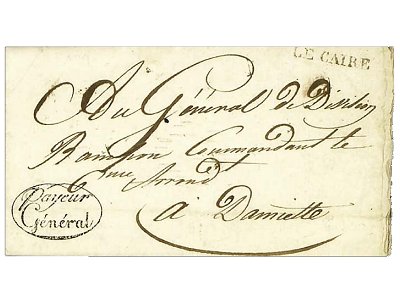 LE CAIRE
Au Général de Division
Rampon Commandant le
6me Arrondt
à Damiette
Payeur
Général